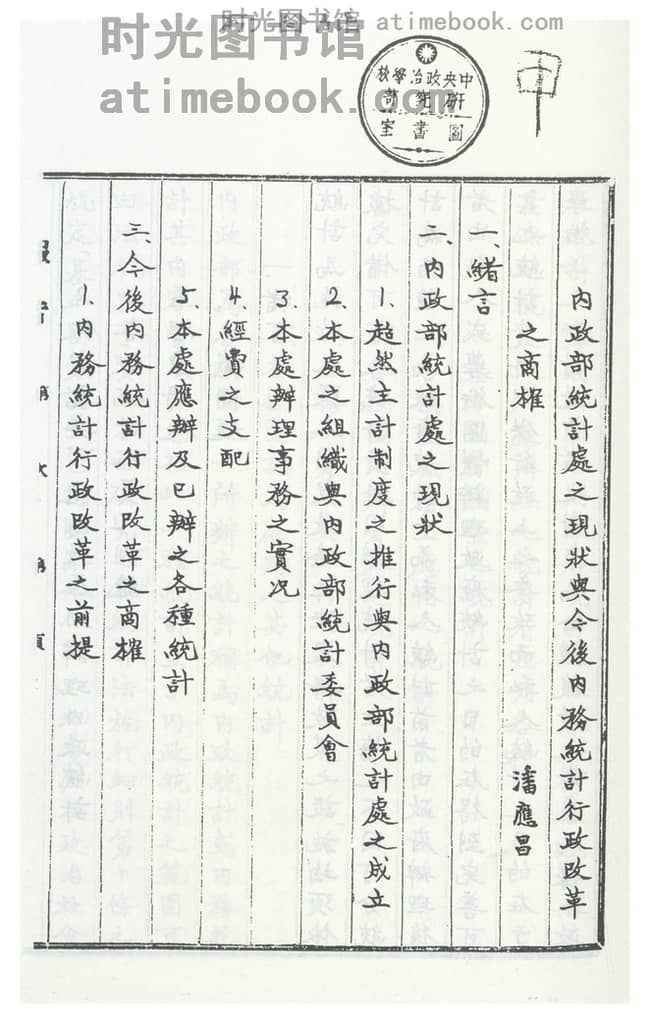 时光图书馆 atimebook.com
时光图书馆
atimebook.com
中央政治學校
研究部
圖書室
內政部統計處之現狀與今後內務統計行政改革
之商榷
潘應昌
一、緒言
二、內政部統計處之現狀
1、超然主計制度之推行與內政部統計處之成立
2、本處之組織與內政部統計委員會
3、本處辦理事務之實況
4、經費之支配
5、本處應辦及已辦之各種統計
三、今後內務統計行政改革之商榷
1、內務統計行政改革之前提